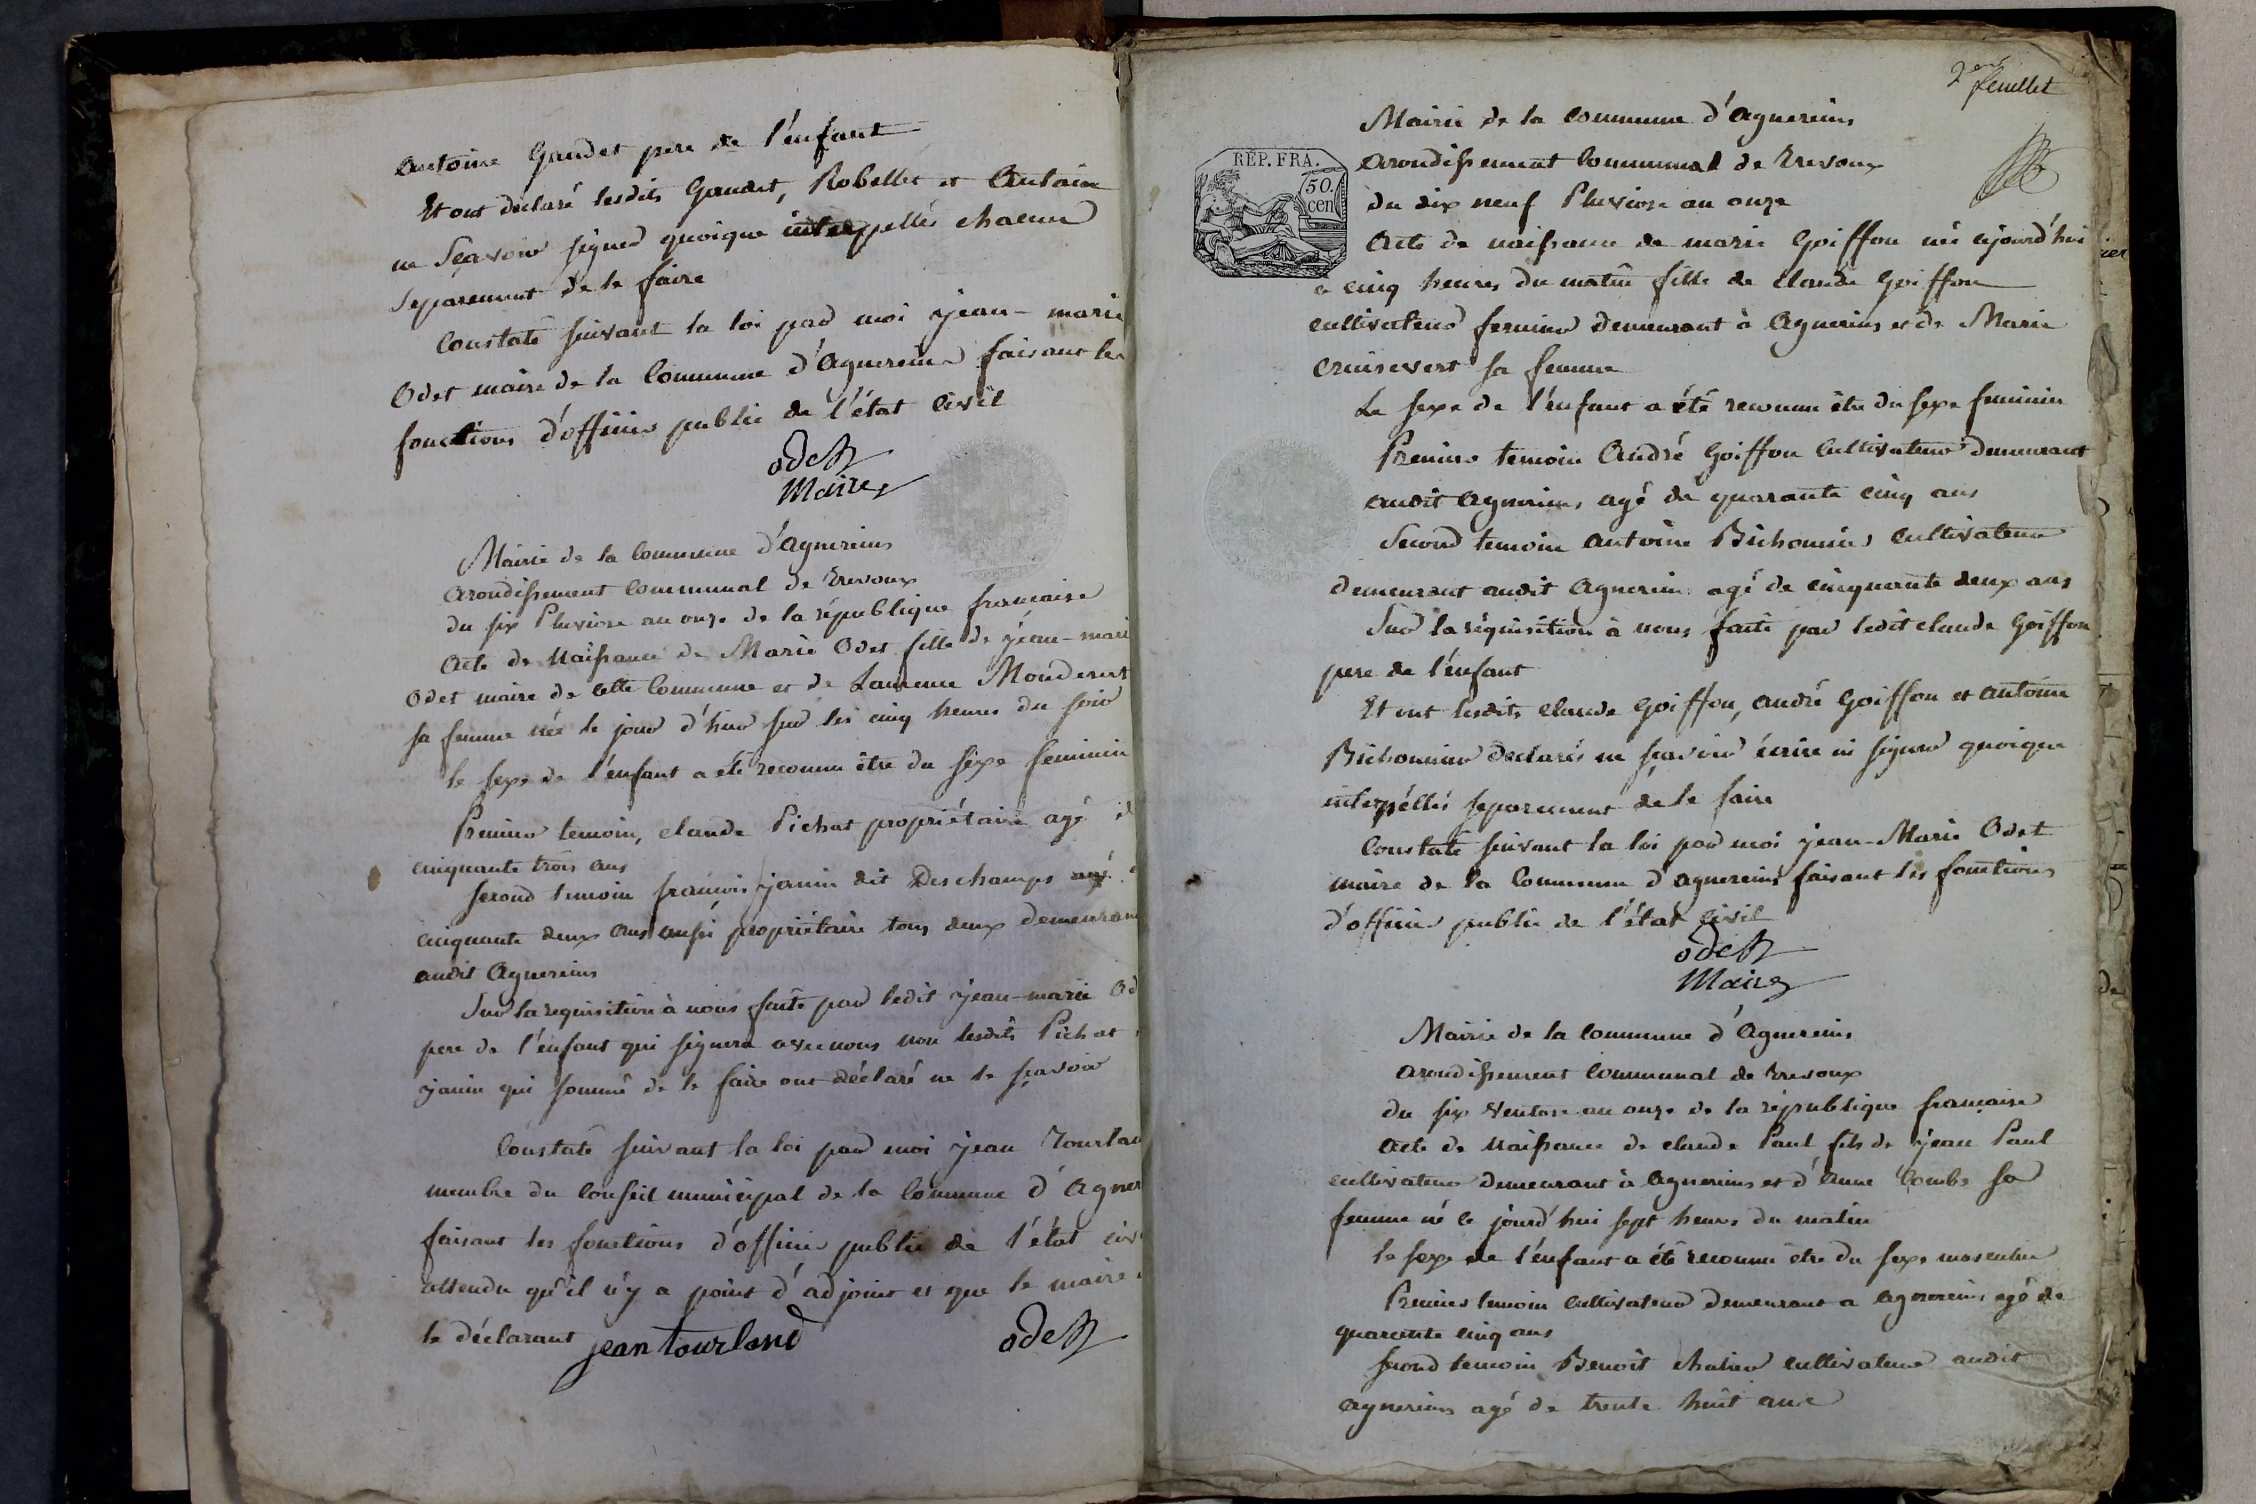 Antoine Gaudet pere de l'enfant
Et ont déclaré lesdits Gaudet, Robellet et Antoine
ne Sçavoir signer quoique interppellés chacun
separement de le faire
Constaté suivant la loi par moi jean-marie
Odet maire de la Commune d'Agnereins faisant les
fonctions d'officier public de l'état civil
odet
Maire
Mairie de la Commune d'Agnereins
Arondissement Communal de Trevoux
du six Pluviose an onze de la république francaise
Acte de Naissance de Marie Odet fille de jean-mari
Odet maire de cette Commune et de Laurence
sa femme née le jour d'hier sur les cinq heures du soir
le sexe de l'enfant a été reconnu être du sexe feminin
Premier temoin, claude Pichat propriétaire agé d
cinquante trois ans
second temoin francois janin dit Deschamps agé
cinquante deux ans aussi propriétaire tous deux demeuran
audit Agnereins
Sur la requisition à nous faite par ledit jean-marie Od
pere de l'enfant qui signera avec nous non lesdits Pichat
janin qui sommé de le faire ont déclaré ne le sçavoir
Constaté suivant la loi par moi jean Tourlan
membre du Conseil municipal de la Commune d'Agner
faisant les fonctions d'officier public de l'état civ
attendu qu'il n'y a point d'adjoint et que le maire
le déclarant jean tourland odet
2eme feuillet
REP. FRA.
50.
cen
Mairie de la Commune d'Agnereins
Arondissement Communal de Trevoux
du dix neuf Pluviose an onze
Acte de naissance de marie Goiffon née ajourd'hui
à cinq heures du matin fille de claude Goiffon
cultivateur fermier demeurant à Agnereins et de Marie
sa femme
Le sexe de l'enfant a été reconnu être du sexe feminin
Premier temoin André Goiffon Cultivateur demeurant
audit Agnereins agé de quarante cinq ans
Second temoin antoine Bichonnier cultivateur
demeurant audit Agnereins agé de cinquante deux ans
Sur la réquisition à nous faite par ledit claude Goiffon
pere de l'enfant
Et ont lesdits claude Goiffon, André Goiffon et antoine
Bichonnier declarés ne sçavoir écrire ni signer quoique
interppéllés separement de le faire
Constaté suivant la loi par moi jean-Marie Odet
maire de la Commune d'agnereins faisant les fonctions
d'officier public de l'état civil
odet
Maire
Mairie de la Commune d'Agnereins
arondissement Communal de Trevoux
du six Ventose an onze de la république francaise
Acte de Naissance de claude Paul fils de jean Paul
cultivateur demeurant à Agnereins et d'Anne Combe sa
femme né le jourd'hui sept heures du matin
le sexe de l'enfant a été reconnu etre du sexe masculin
Premier temoin Cultivateur demeurant a agnereins agé de
quarante cinq ans
second temoin Benoit cultivateur audit
agnereins agé de trente huit ans